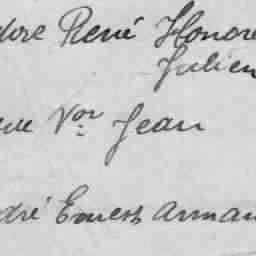 dore René Honoré
Julien
Vor Jean
dré Ernest Arman